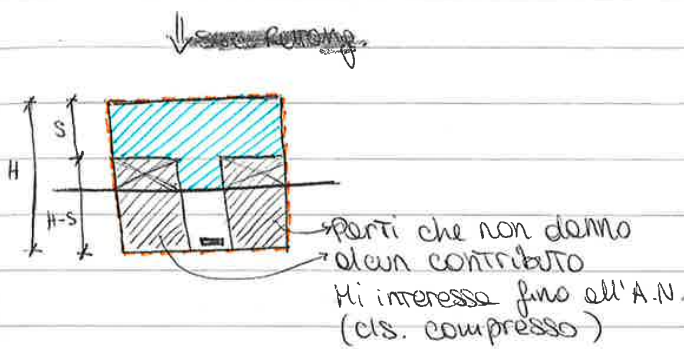 S
H
H-S
Parti che non danno
alcun contributo
Mi interessa fino all'A.N.
(cls. compresso)